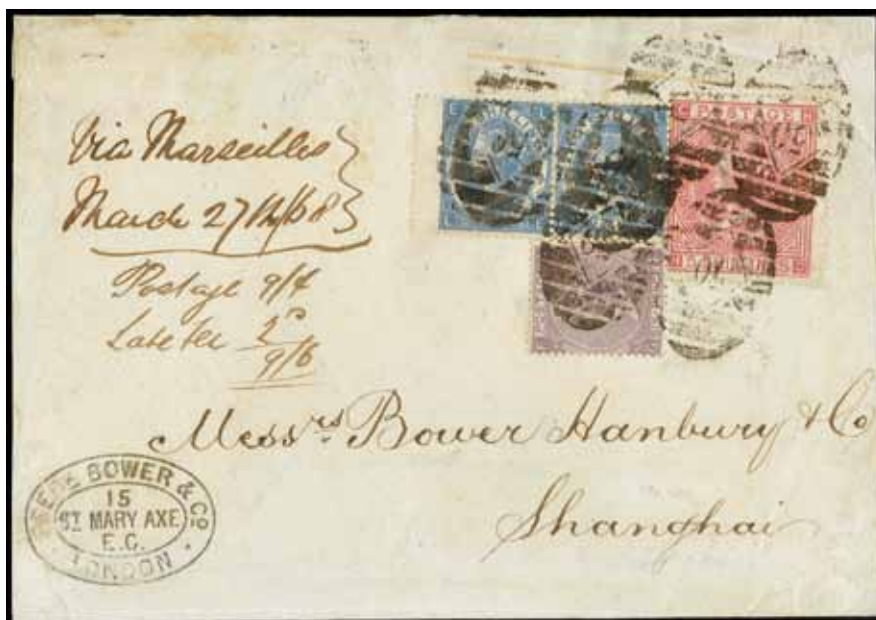 Via Marseilles
March 27th/68
Postage 9/4
Late fee 2ᴰ
9/6
POSTAGE
Messʳˢ Bower Hanbury & Co
Shanghai
BOWER & Cº
15
Sᵀ MARY AXE
E.C.
LONDON